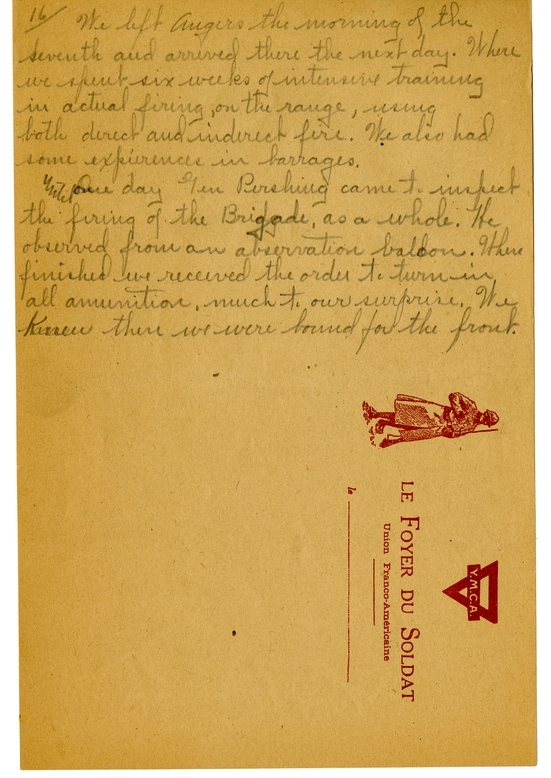 16/
We left Angers the morning of the
seventh and arrived there the next day. Where
we spent six weeks of intensive training
in actual firing, on the range, using
both direct and indirect fire. We also had
some expierences in barrages.
Until one day Gen Pershing came to inspect
the firing of the Brigade, as a whole. He
observed from an absorvation baloon. When
finished we received the order to turn in
all amunition, much to our surprise. We
Knew then we were bound for the front.
Y.M.C.A.
LE FOYER DU SOLDAT
Union Franco-Américaine
le